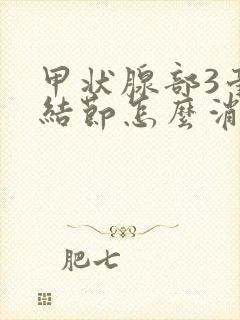 甲状腺部3
結節怎麼消
肥七